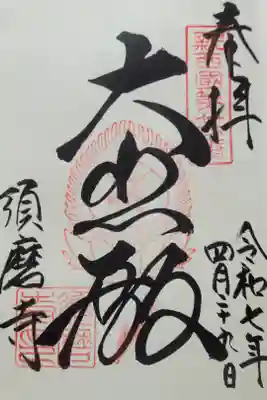 奉拝
令和七年
四月二十九日
大悲殿
須磨寺